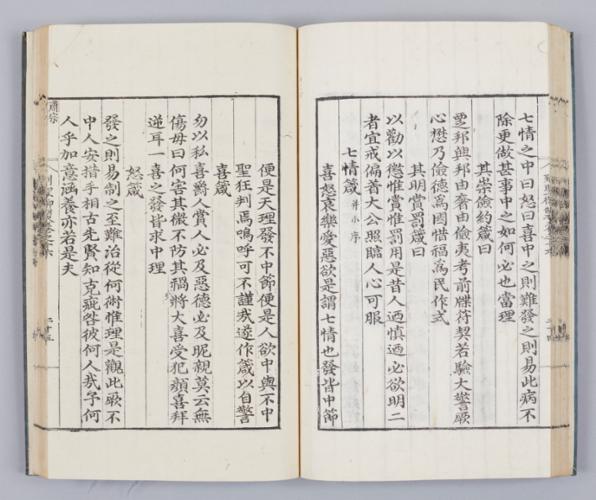 七情之中曰怒曰喜中之則難發之則易此病不
除更做甚事中之如何必也當理
其崇儉約箴曰
喪邦興邦由奢由儉夷考前牒符契若驗大警厥
心懋乃儉德爲國惜福爲民作式
其明賞罰箴曰
以勸以懲惟賞惟罰用是昔人迺愼迺必欲明二
者宜戒偏首大公照臨人心可服
七情箴 并小序
喜怒哀樂愛惡欲是謂七情也發皆中節
便是天理發不中節便是人欲中與不中
聖狂判焉嗚呼可不謹哉遂作箴以自警
喜箴
勿以私喜爵人賞人必及惡德必及昵親莫云無
傷毋曰何害其微不防其禍將大喜受犯顔喜拜
逆耳一喜之發皆求中理
怒箴
發之則易制之至難治從何術惟理是觀此厥不
中人安措手相古先賢知克疵咎彼何人哉予何
人乎加意涵養亦若是夫
肅宗
二十五